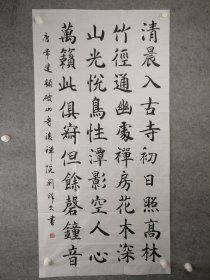 清晨入古寺初日照高林
竹徑通幽處禪房花木深
山光悅鳥性潭影空人心
萬籟此俱寂但餘磬鐘音
唐常建題破山寺後禪院 劉文書